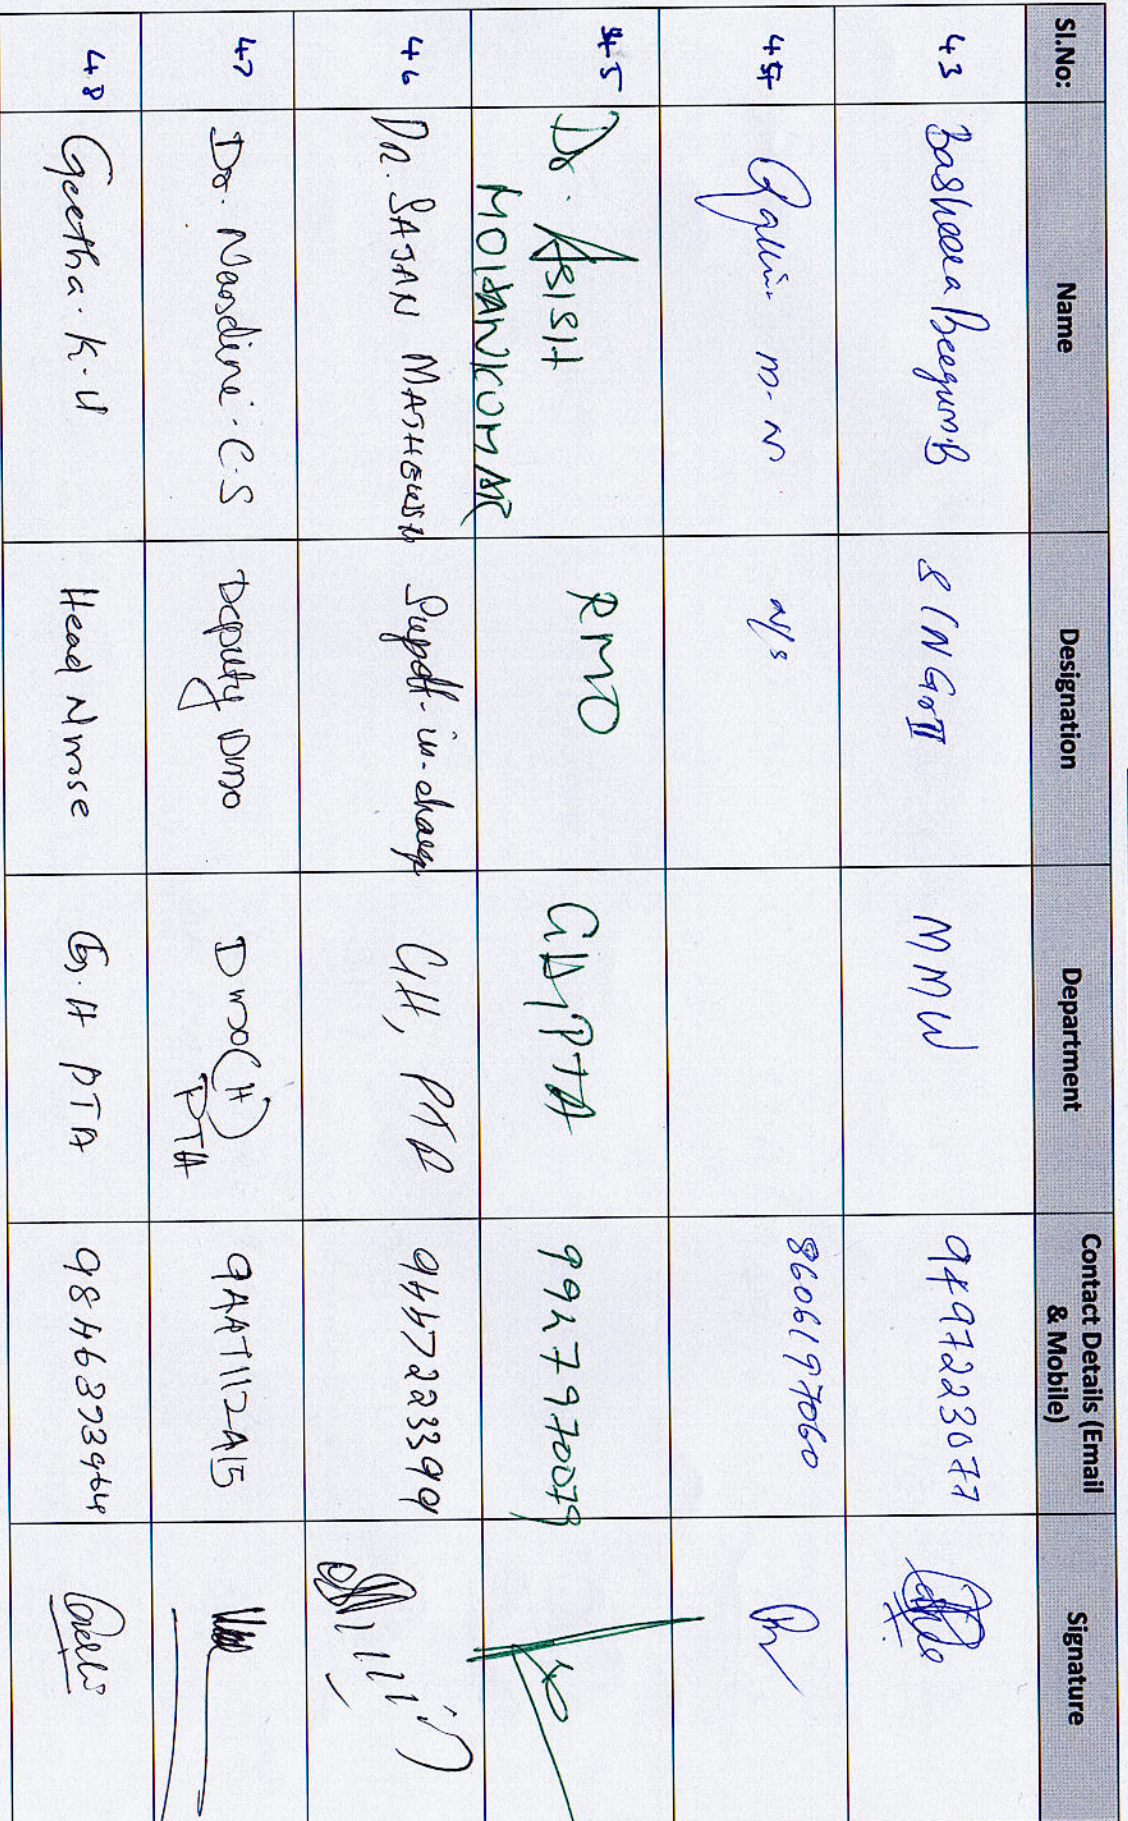 Sl.No: Name Designation Department Contact Details (Email & Mobile) Signature
43 Basheera Beegum.B S/N Gr II MMW 9497223077
44 m.N N/s 8606197060
45 Dr. ASISH MOHANKUMAR RMO GH, PTA 9947970079
46 Dr. SAJAN MATHEWS Supdt-in-charge GH, PTA 9447223399
47 Dr. Nandini.C.S Deputy DMO DMO(H) PTA
48 Geetha.K.U Head Nurse G.H PTA